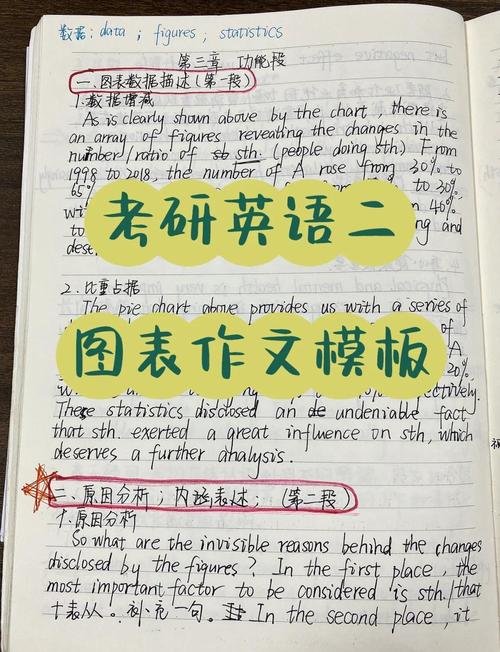 数据: data ; figures ; statistics
第三章 功能段
一、图表数据描述(第一段)
1.数据增减
As is clearly shown above by the chart, there is
an array of figures revealing the changes in the
number/ratio of sth. (people doing sth) From
1998 to 2018, the number of A rose from 30% to
65% to 30%,
wit 40%
to ng and
dest
考研英语二
2.比重占据
The pie chart above provides us with a series of
of
A
图表作文模板
20%.
ectively.
These statistics disclosed an undeniable fact
that sth. exerted a great influence on sth, which
deserves a further analysis.
二、原因分析;内涵表述;(第二段)
1.原因分析
So what are the invisible reasons behind the changes
disclosed by the figures? In the first place, the
most important factor to be considered is sth./that
+表从。补充一句。In the second place, it